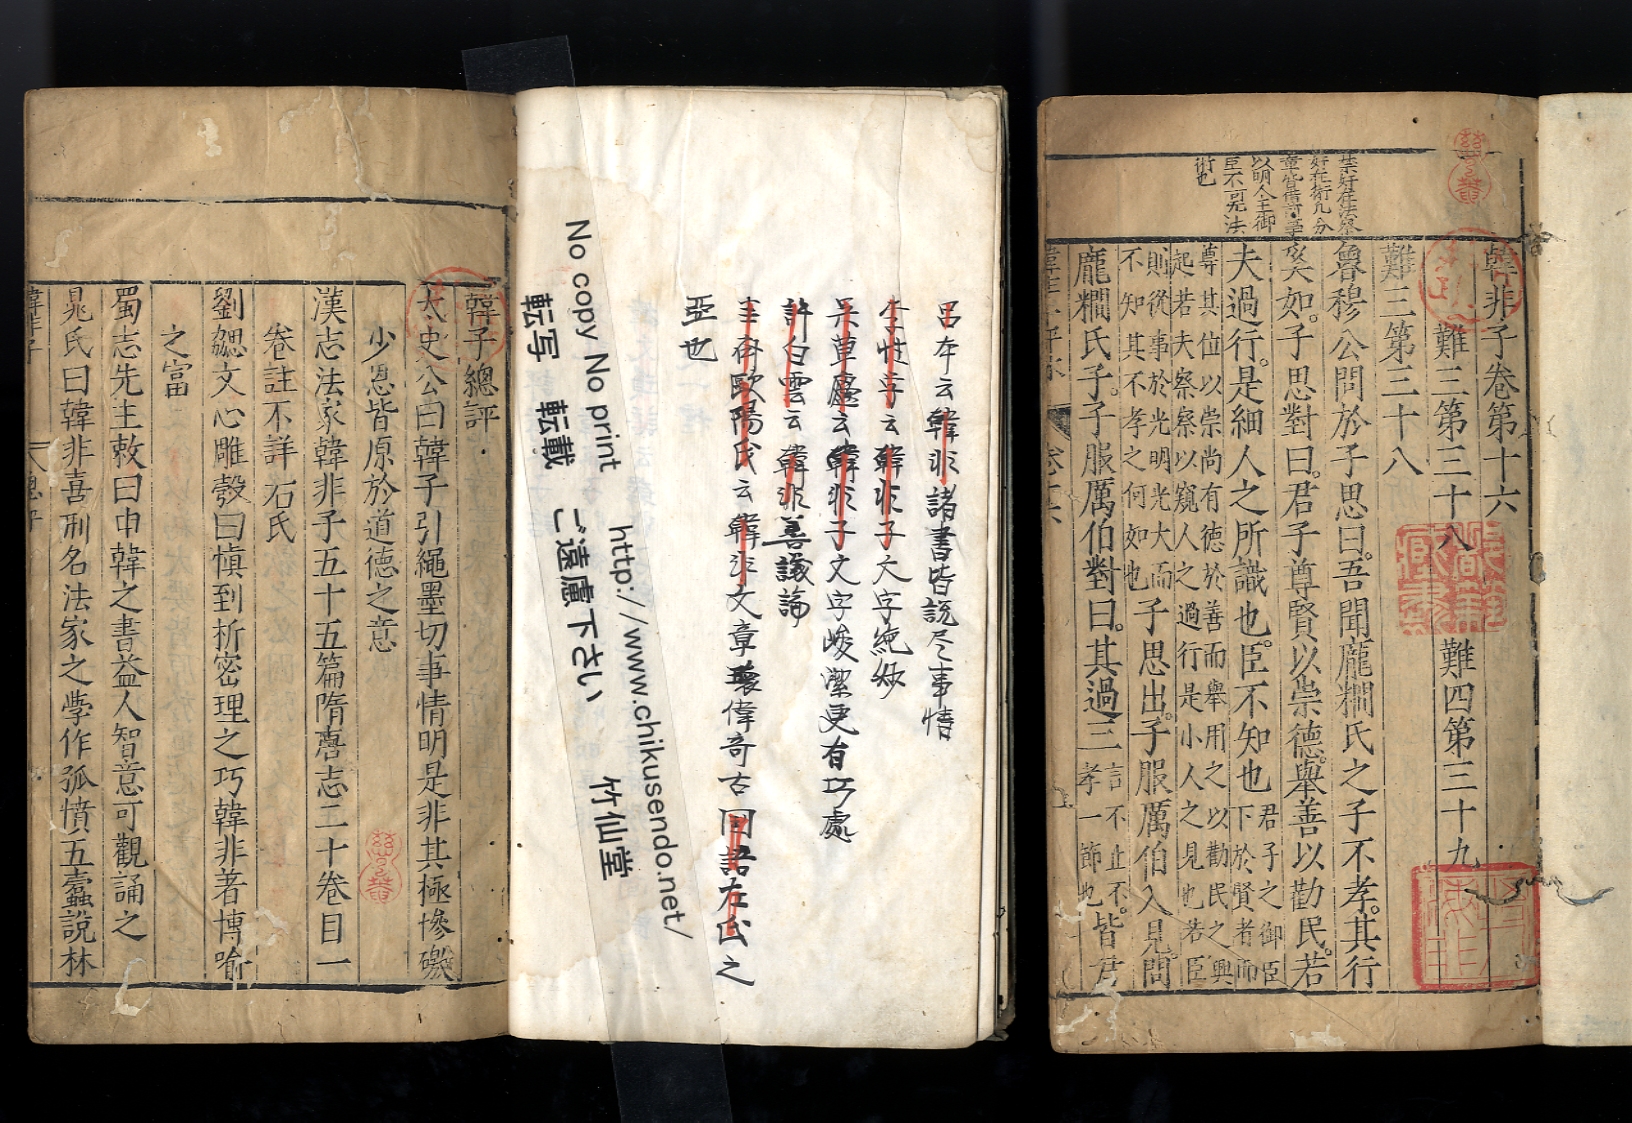 韓非子卷第十六
難三第三十八
難四第三十九
難三第三十八
魯穆公問於子思曰吾聞龐𥼶氏之子不孝其行
奚如子思對曰君子尊賢以崇德舉善以勸民若
夫過行是細人之所識也臣不知也
君子之御臣
下於賢者而
尊其位以崇尚有德於善而舉用之以勸民之興
起若夫察察以窺人之過行是小人之見也若臣
則從事於光明光大而
不知其不孝之何如也
子思出子服厲伯入見問
龐𥼶氏子子服厲伯對曰其過三
言不止不
孝一節也
皆君
禁奸在法察
好在術凡分
以明人主御
臣不可无法
術也
呂本云韓非諸書皆說尽事情
李性学云韓非子文字絶妙
吳草廬云韓非子文字峻潔更有巧處
許白雲云韓非善議論
云韓非文章瓌偉奇古国語左氏之
亞也
No copy No print http://www.chikusendo.net/
転写 転載 ご遠慮下さい 竹仙堂
韓子總評
太史公曰韓子引繩墨切事情明是非其極慘礉
少恩皆原於道德之意
漢志法家韓非子五十五篇隋唐志二十卷目一
卷註不詳名氏
劉勰文心雕龍曰愼到析密理之巧韓非著博喻
之富
蜀志先主敕曰申韓之書益人智意可觀誦之
晁氏曰韓非喜刑名法家之學作孤憤五蠹說林